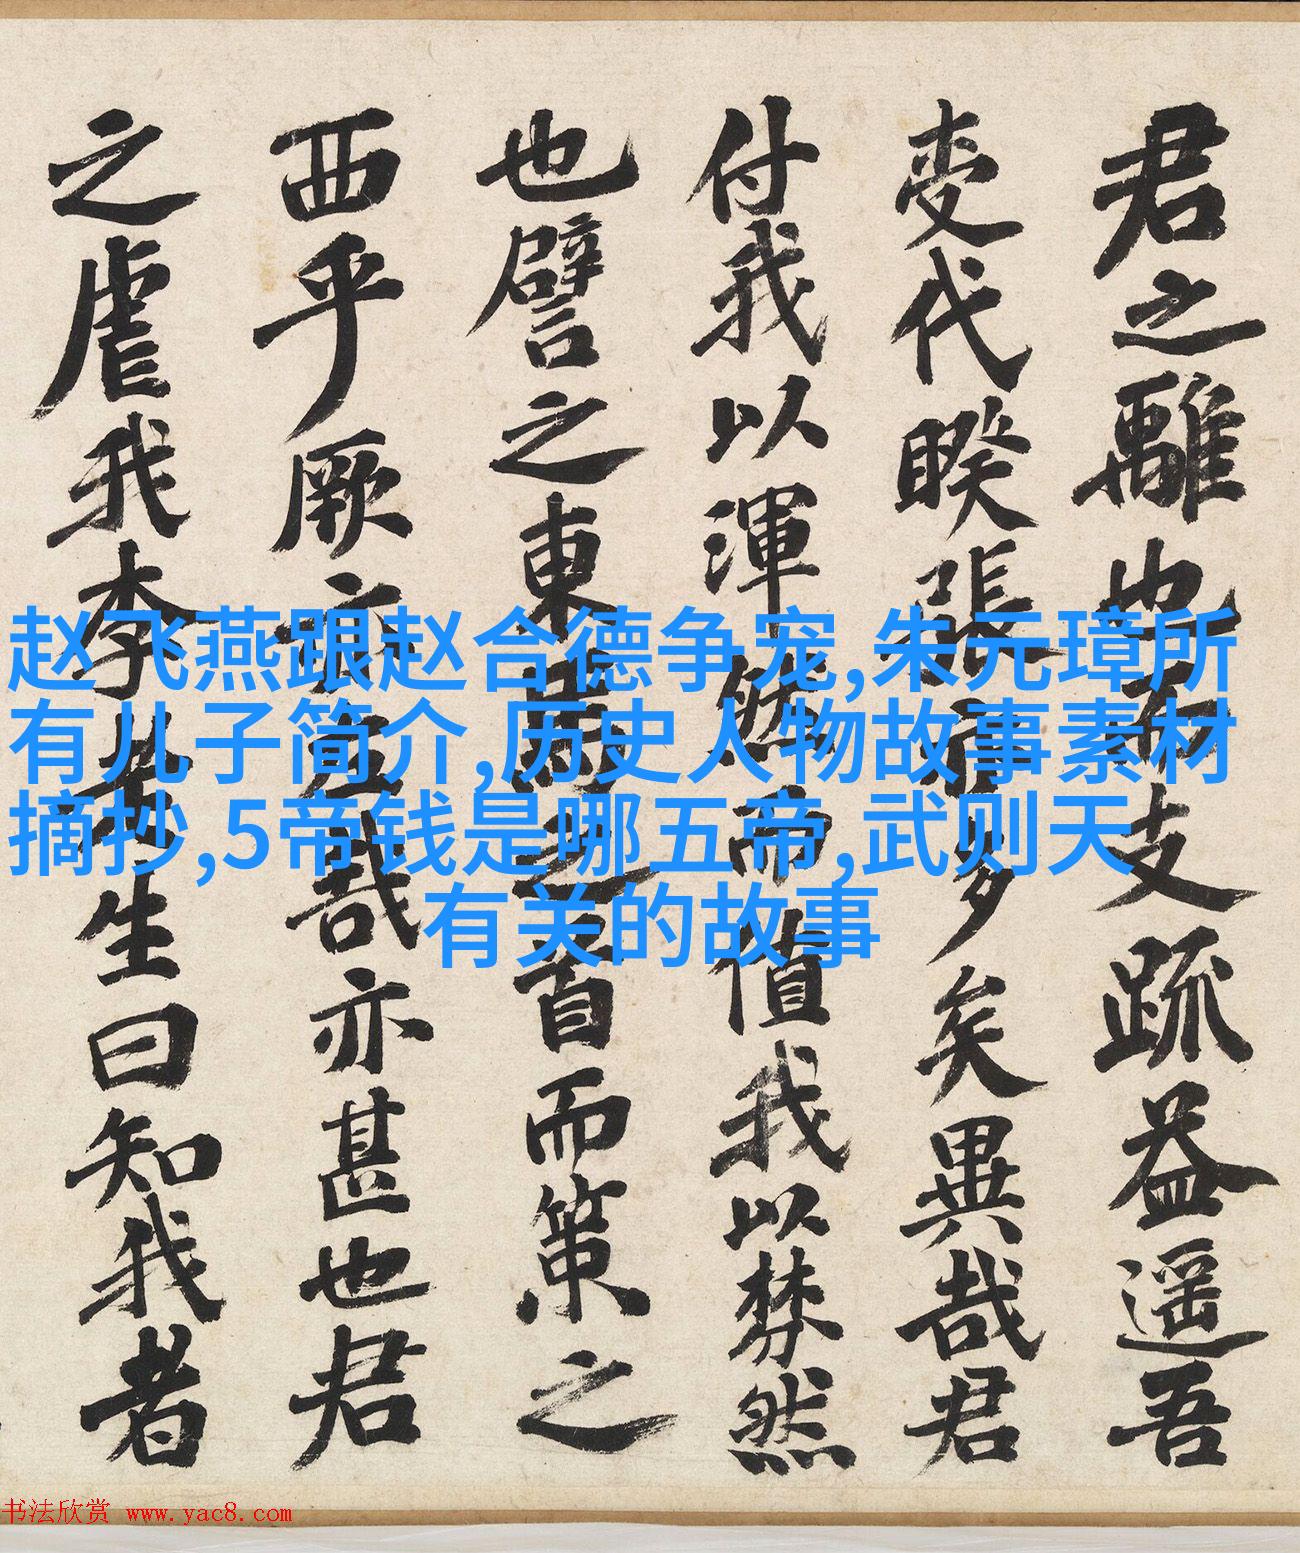 君之離也支疏益遥吾
变代睽張多矣異哉君
付我以渾然而值我以棼然
也譬之東之首而策之
西乎厥哉亦甚也君
之虐我李生曰知我者
赵飞燕跟赵合德争宠,朱元璋所
有儿子简介,历史人物故事素材
摘抄,5帝钱是哪五帝,武则天
有关的故事
书法欣赏 www.yac8.com